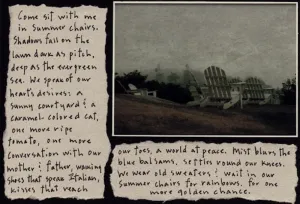 Come sit with me
in Summer chairs.
Shadows fall on the
lawn dark as pitch,
deep as the evergreen
sea. We speak of our
hearts desires: a
sunny courtyard & a
caramel colored cat,
one more ripe
tomato, one more
conversation with our
mother & father, waxing
shoes that speak Italian,
kisses that reach
our toes, a world at peace. Mist blurs the
blue balsams, settles round our knees.
We wear old sweaters & wait in our
Summer chairs for rainbows, for one
more golden chance.